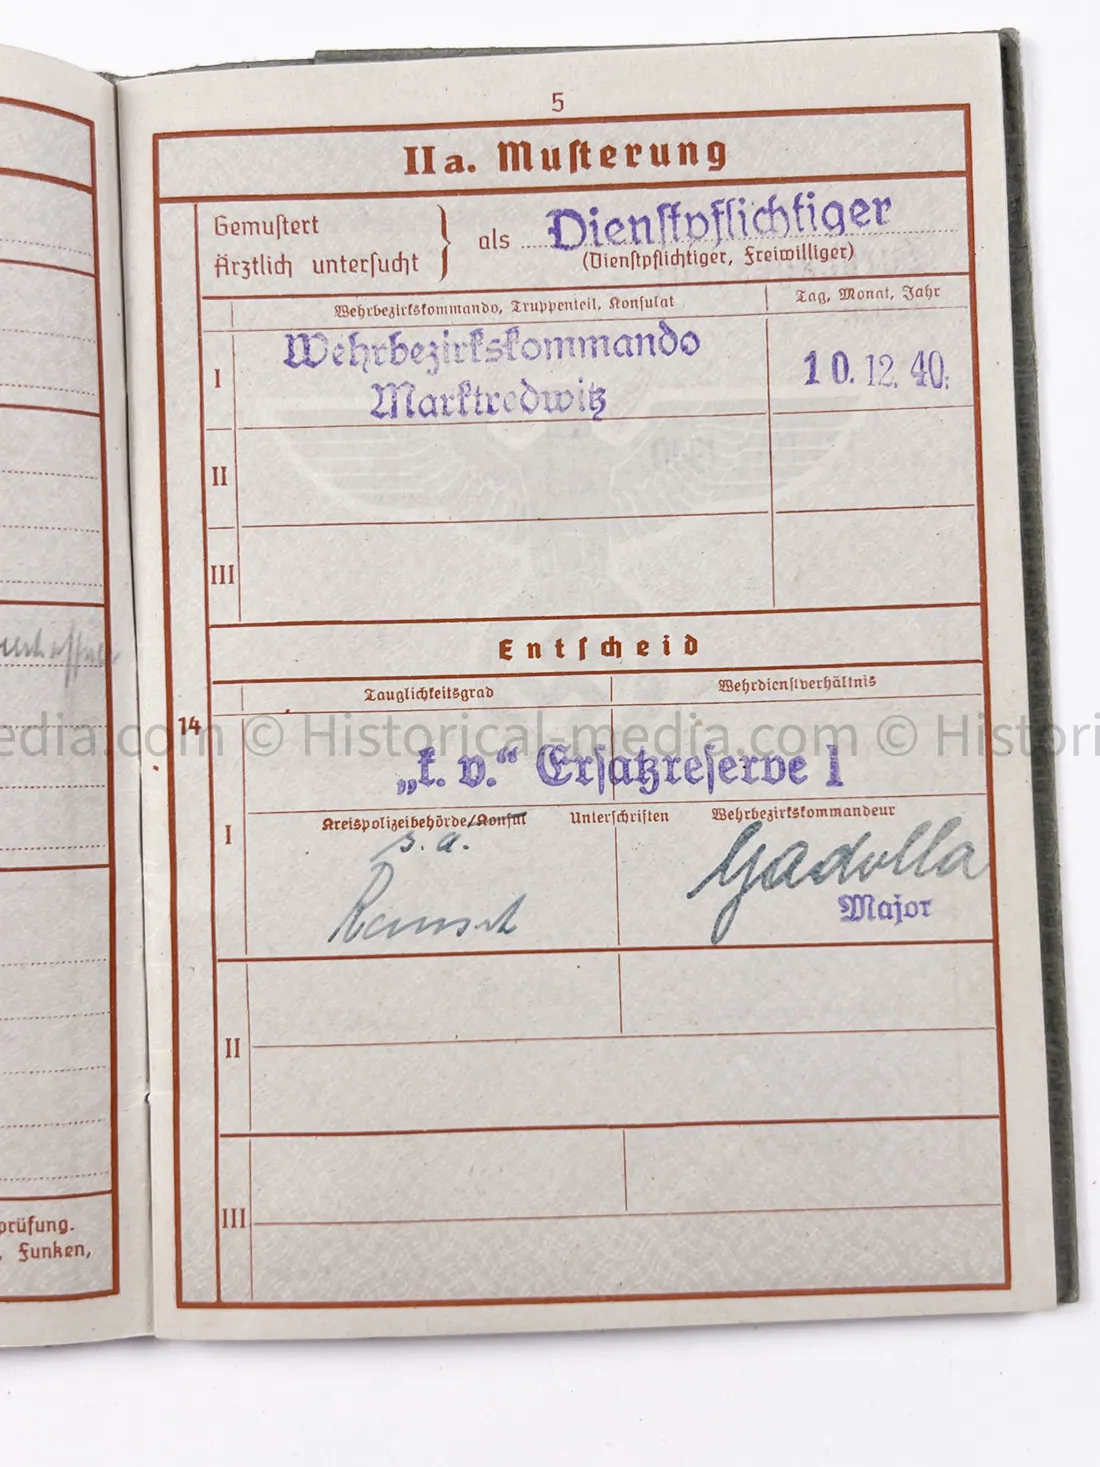 5
IIa. Musterung
Gemustert
Ärztlich untersucht
als Dienstpflichtiger
(Dienstpflichtiger, Freiwilliger)
Wehrbezirkskommando, Truppenteil, Konsulat
Tag, Monat, Jahr
I
Wehrbezirkskommando
Marktredwitz
10. 12. 40.
II
III
Entscheid
Tauglichkeitsgrad
Wehrdienstverhältnis
14
edia.com © Historical-media.com © Histori
„k. v.“ Ersatzreserve 1
I
Kreispolizeibehörde/Konsul
Unterschriften
Wehrbezirkskommandeur
s. a.
Gadolla
Major
II
III
prüfung.
Funken,